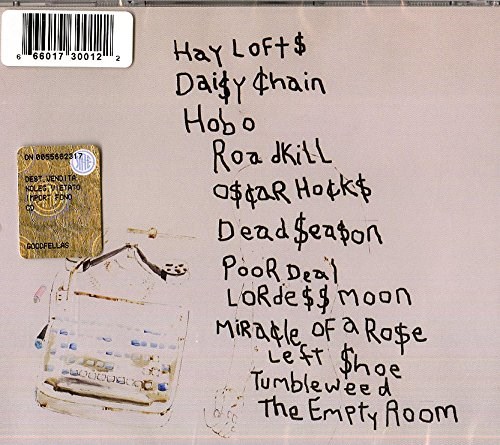 Hay Loft$
Dai$y ¢hain
Hobo
RoadKiLL
o$¢aR Ho¢k$
Dead $ea$on
PooR Deal
LoRde$$ moon
MiRa¢le oF a Ro$e
Left $hoe
Tumbleweed
The Empty Room
6 66017 30012 2
DN 0055682317
DEST.VENDITA
NOLEG.VIETATO
IMPORT FONO
CD
GOODFELLAS